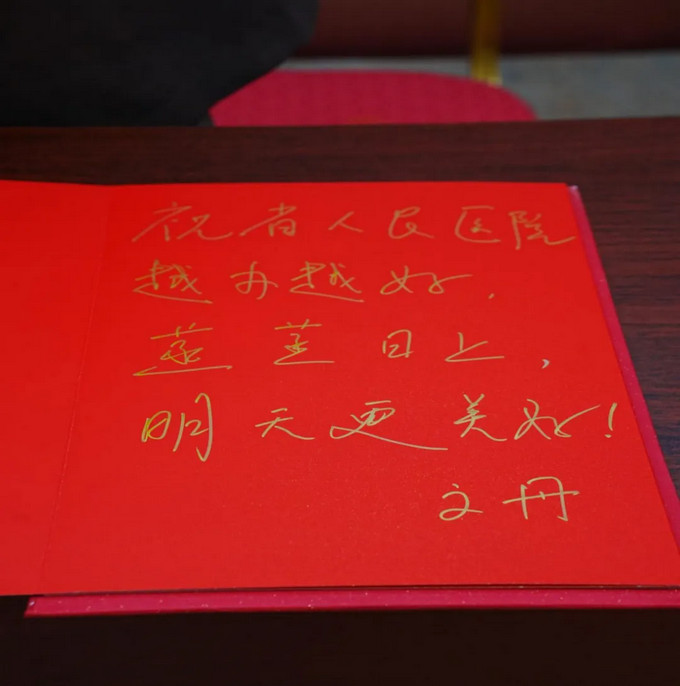 祝省人民医院
越办越好，
蒸蒸日上，
明天更美好！
文丹